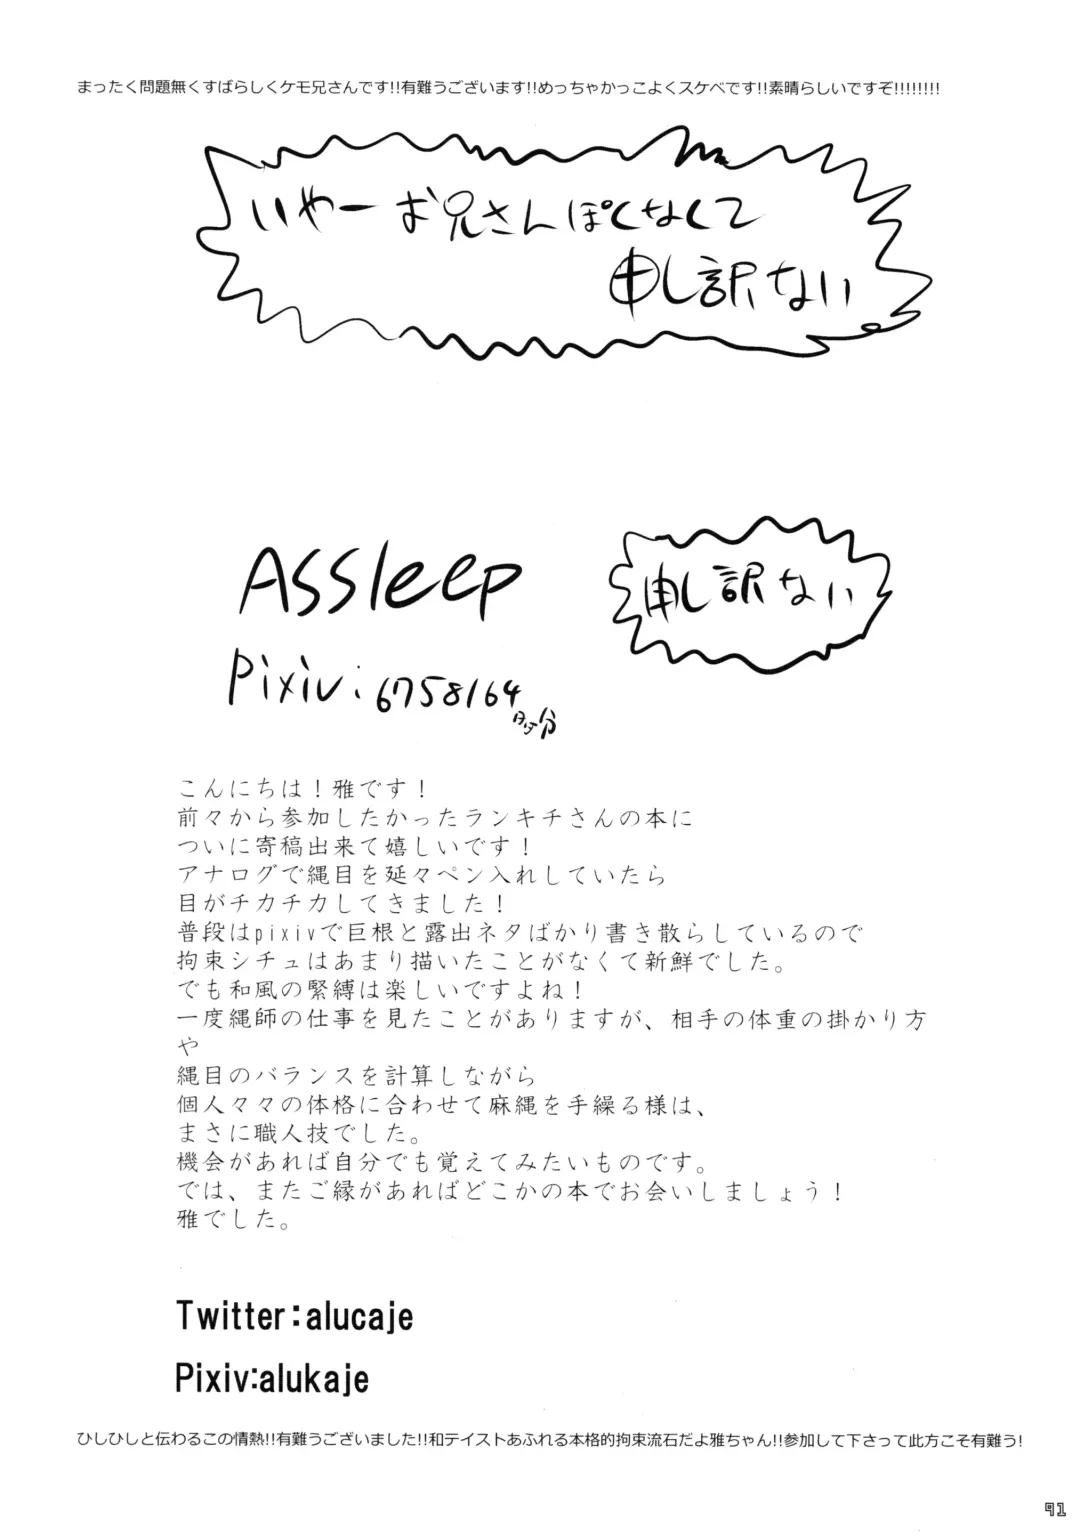 まったく問題無くすばらしくケモ兄さんです!!有難うございます!!めっちゃかっこよくスケベです!!素晴らしいですぞ!!!!!!!!
いやーお兄さんぽくなくて
申し訳ない
Assleep
申し訳ない
Pixiv:6758164
こんにちは！雅です！
前々から参加したかったランキチさんの本に
ついに寄稿出来て嬉しいです！
アナログで縄目を延々ペン入れしていたら
目がチカチカしてきました！
普段はpixivで巨根と露出ネタばかり書き散らしているので
拘束シチュはあまり描いたことがなくて新鮮でした。
でも和風の緊縛は楽しいですよね！
一度縄師の仕事を見たことがありますが、相手の体重の掛かり方
や
縄目のバランスを計算しながら
個人々々の体格に合わせて麻縄を手繰る様は、
まさに職人技でした。
機会があれば自分でも覚えてみたいものです。
では、またご縁があればどこかの本でお会いしましょう！
雅でした。
Twitter:alucaje
Pixiv:alukaje
ひしひしと伝わるこの情熱!!有難うございました!!和テイストあふれる本格的拘束流石だよ雅ちゃん!!参加して下さって此方こそ有難う!
91